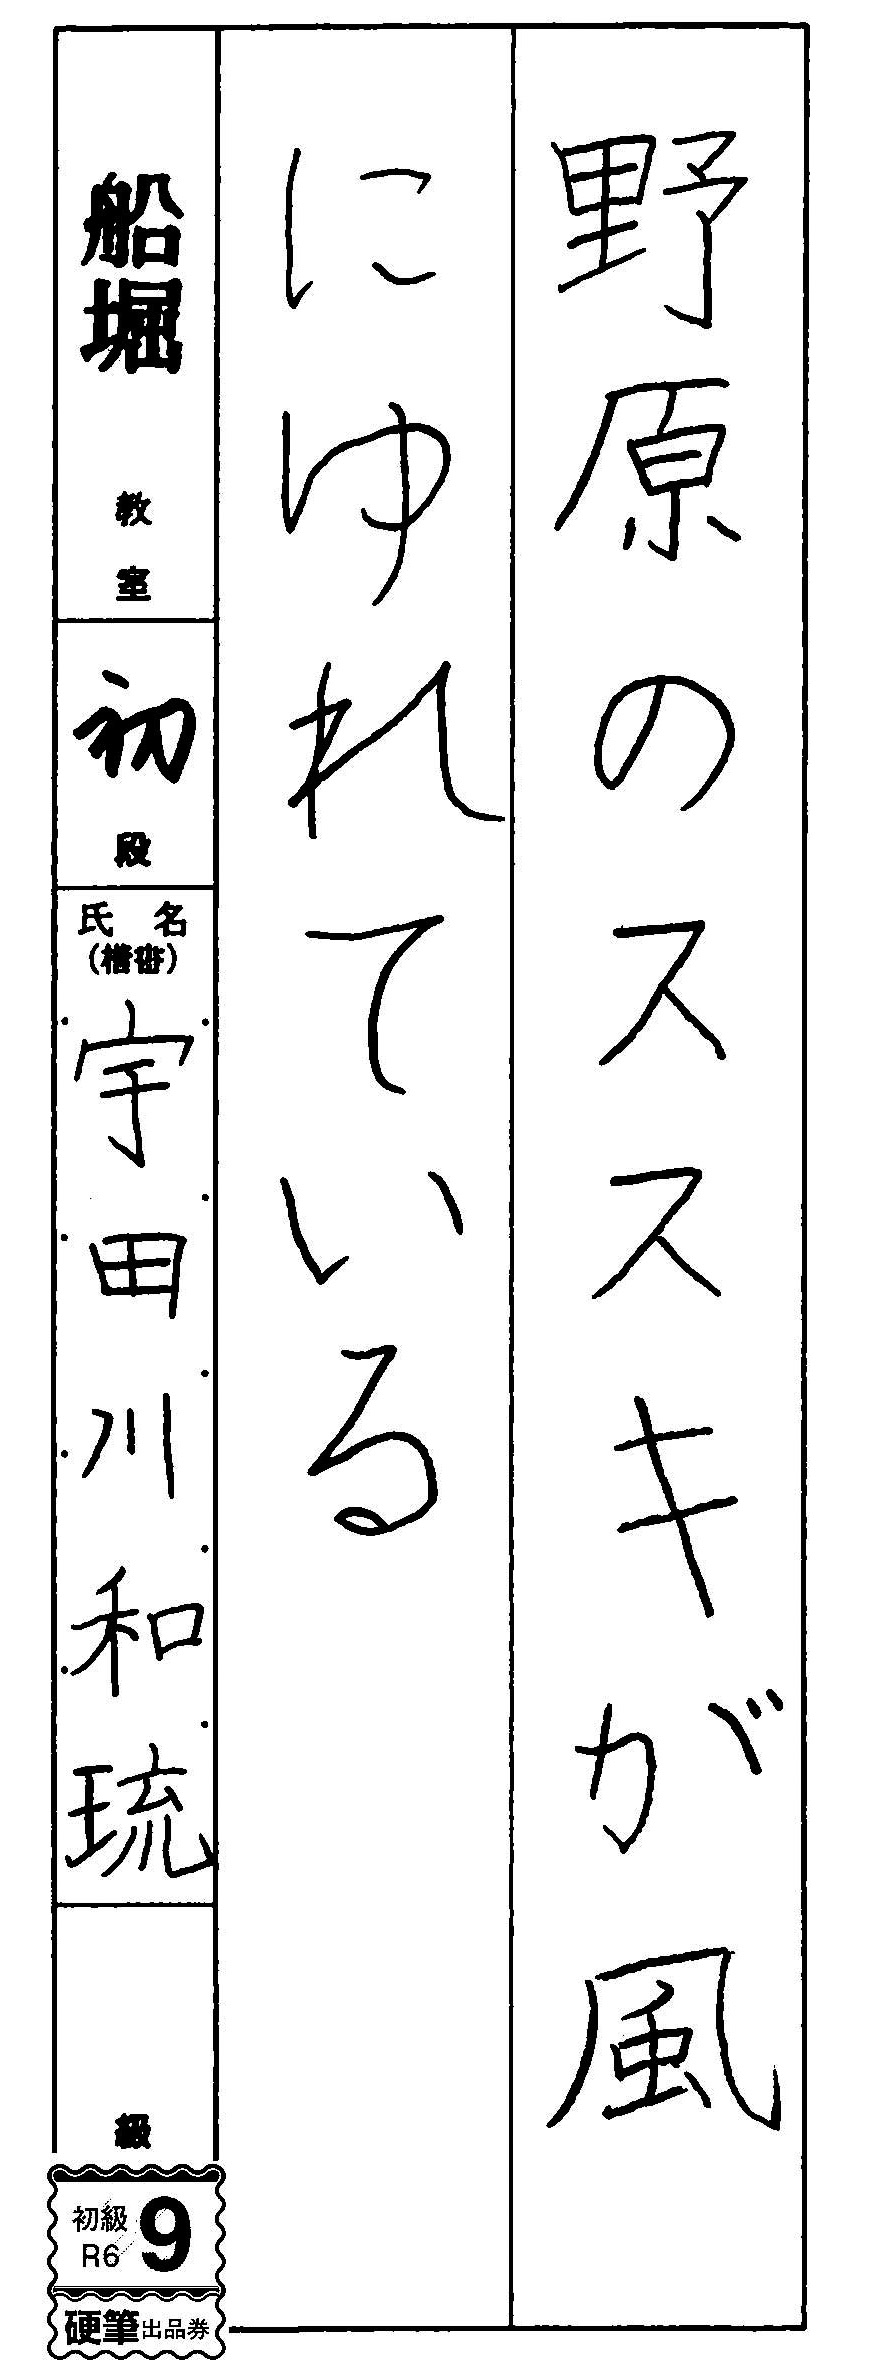 野原のススキが風
にゆれている
船堀教室
初段
氏名
(楷書)
宇田川和琉
級
初級
R6
9
硬筆出品券